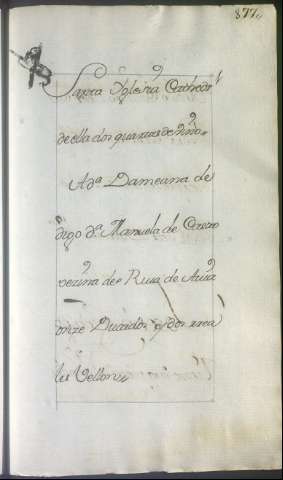 877,,
Santa Yglesia Cathedral
de ella dos quartas de vino
A dª Dameana de
digo dª Manuela de Castro
vezina de Rua de Auia
onze Ducados y dos rea
les Vellon,,